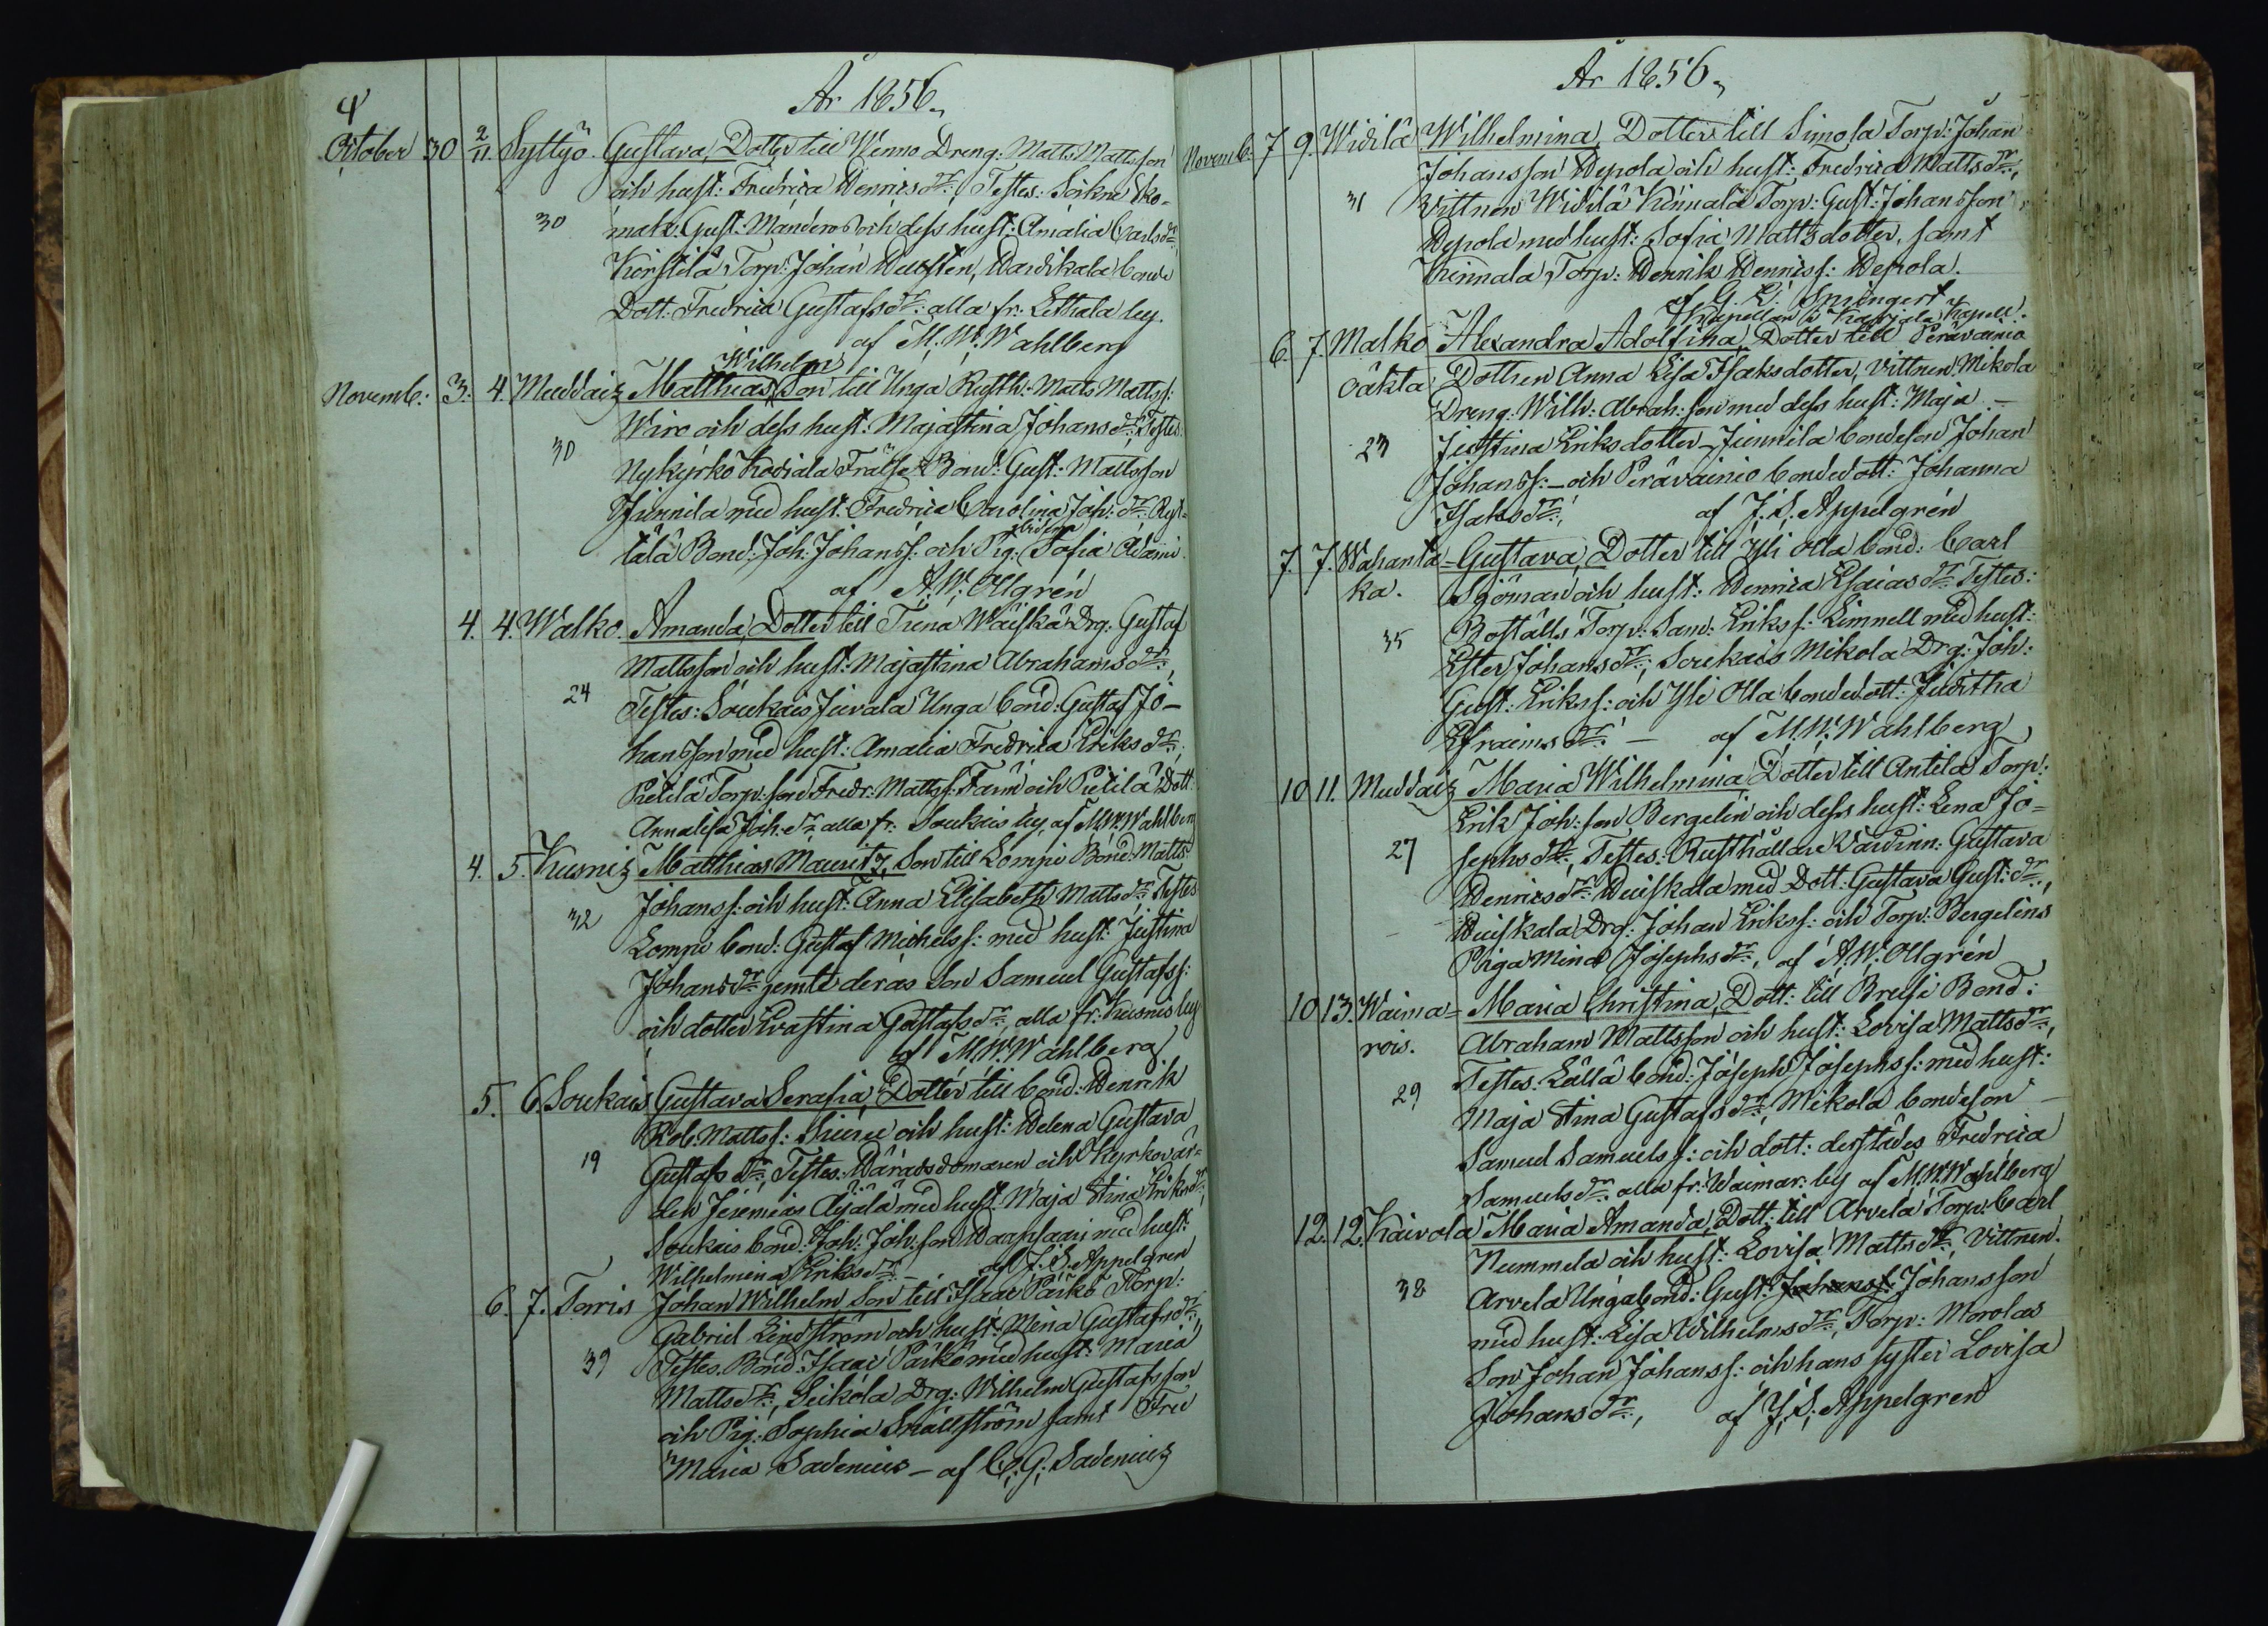 År 1856.
4
October 30 2/11. Syttyö. Gustava, Dotter till Wenno Dreng: Matts Mattsson
och hust: Fredrica Henricsdr: Testes: Soikne Sko-
30 mak. Gust: Manderos och dess hust: Amalia Carlsdr
Kirstilä Torp: Johan Hellsten, Haudikala bonde
Dott: Fredrica Gustafsdr: alla fr: Lethala by.
af M. W. Wahlberg
Wilhelm
Novemb: 3. 4. Muddaiz Matthias, Son till Unga Rusth: Matts Mattss:
Wiro och dess hust: Majastina Johansdr: Testes.
30 Nykyrko Kodiala Frälse Bond: Gust: Mattsson
Junnila med hust: Fredrica Carolina Joh: dr: Ryt-
tälä Bond: Joh: Johanss: och Pig: Sofia Adami
af A. W. Ollgrén
4. 4. Walko. Amanda, Dotter till Trena Wäiskä Drg: Gustaf
Mattsson och hust: Majastina Abrahamsdr:,
24 Testes: Soukais Juvala Unga bond: Gustaf Jo-
hansson med hust: Amalia Fredrica Eriksdr:,
Pietilä Torp: son Fredr: Mattss: Farm och Pietilä Dott:
Annalisa Joh: dr: alla fr: Soukais by, af M. W. Wahlberg
4. 5. Kusniz Matthias Mauritz, Son till Lompi Bond: Matts
Johanss: och hust: Anna Elisabeth Mattsdr: Testes
32 Lompi bond: Gustaf Michelss: med hust: Justina
Johansdr: jemte deras Son Samuel Gustafss:
och dotter Evastina Gustafsdr:, alla fr: Kusnis by
af M. W. Wahlberg
5. 6. Soukais Gustava Serafia Dotter till bond: Henrik
Rob: Mattss: Siuru och hust: Helena Gustava
19 Gustafsdr: Testes: Häradsdomaren och Kyrkovär-
den Jeremias Äijälä med hust: Maja Stina Eriksdr:,
Soukais bond: Joh: Joh: son Haapsaari med hust:
Wilhelmina Eriksdr: - af J. S. Appelgren
6. 7. Torris Johan Wilhelm Son till Isaac Pärkö Torp:
Gabriel Lindström och hust: Mina Gustafsdr:,
39 Testes. Bond: Isaac Pärkö med hust: Maria
Mattsdr:, Seikola Drg: Wilhelm Gustafsson
och Pig: Sophia Snällström samt Fru
Maria Sadenius - af C. G. Sadeniuz
År 1856.
Novemb: 7 9. Widilä Wilhelmina, Dotter till Simola Torp: Johan
Johansson Hepola och hust: Fredrica Mattsdr:,
31 Vittnen Widilä Kinnala Torp: Gust: Johansson
Hepola med hust: Sofia Mattsdotter, samt
Kinnala Torp: Henrik Henricss: Hepola.
af G. E. Springert
Kapellan i Karjala Kapell.
6. 7. Malko Alexandra Adolfina Dotter till Perävainio
oäkta Dottren Anna Lisa Isaksdotter, Vittnen Mikola
Dreng. Wilh: Abrah: son med dess hust: Maja -
23 Justina Eriksdotter - Junnila bondeson Johan
Johanss: - och Perävainio bondedott: Johanna
Isaksdr: af J. S. Appelgrén
7. 7. Wahanta- Gustava, Dotter till Yli Olla bond: Carl
ka. Sjöman och hust: Henrica Esaiasdr: Testes:
Boställs Torp: Sam: Erikss: Limnell med hust:
35 Ester Johansdr:, Soukais Mikola Drg: Joh:
Gust: Erikss: och Yli Olla bondedott: Juditha
Efraimsdr: - af M. W. Wahlberg
10 11. Muddaiz Maria Wilhelmina, Dotter till Antila Torp:
Erik Joh: son Bergelin och dess hust: Lena Jo-
27 sephsdr:, Testes: Rusthållare Värdinn: Gustava
Henricsdr: Huiskala med Dott: Gustava Gust: dr:,
Huiskala Drg: Johan Erikss: och Torp: Bergelins
Piga Mina Josephsdr:, af A. W. Ollgrén
10 13. Waima- Maria Christina, Dott: till Breisi Bond:
rois. Abraham Mattsson och hust: Lovisa Mattsdr:,
Testes. Källä bond: Joseph Josephss: med hust:
29 Maja Stina Gustafsdr:, Mikola bondeson -
Samuel Samuelss: och dott: derstädes Fredrica
Samuelsdr: alla fr: Waimar: by af M. W. Wahlberg
12. 12. Kaivola Maria Amanda, Dott: till Arvela Torp: Carl
Nummela och hust: Lovisa Mattsdr:, Vittnen.
38 Arvela Unga bond: Gust: Johanss: Johansson
med hust: Lisa Wilhelmsdr:, Torp: Morolas
Son Johan Johanss: och hans syster Lovisa
Johansdr:, af J. S. Appelgren